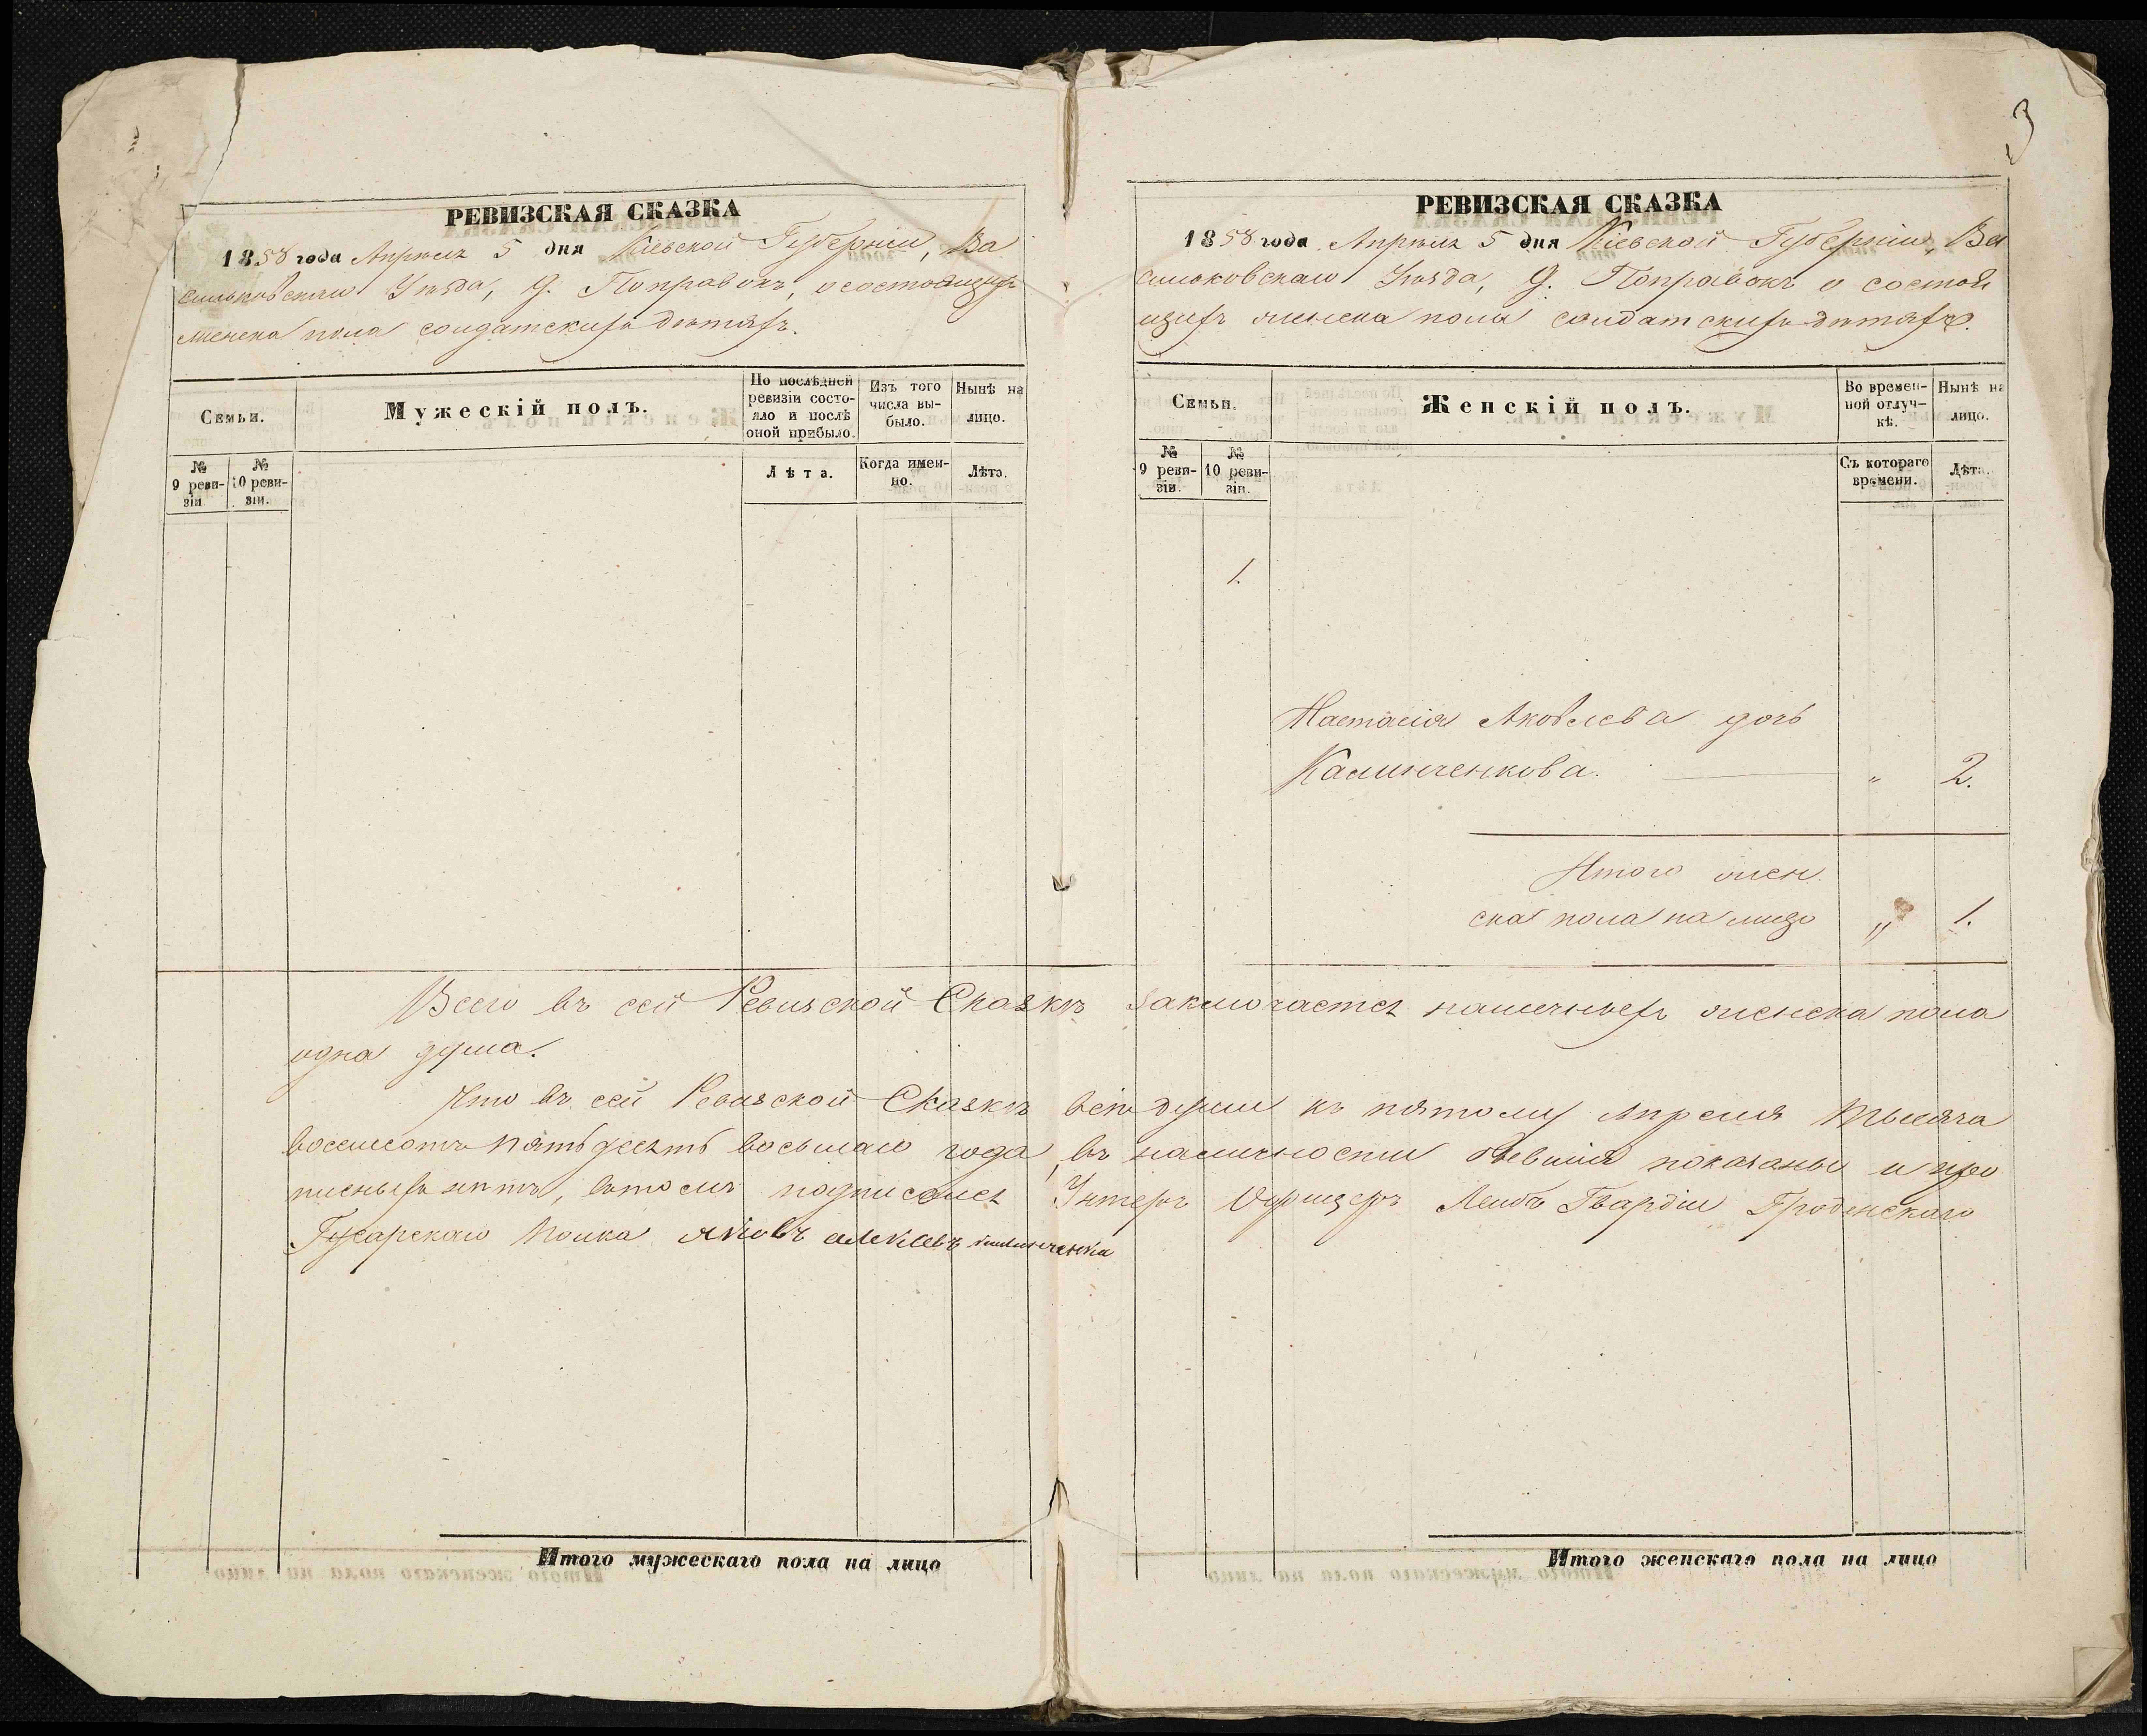 3
РЕВИЗСКАЯ СКАЗКА
1858 года Апрѣля 5 дня Кіевской Губерніи, Ва
сильковскаго Уѣзда, Д. Поправокъ, о состоящихъ
женска пола солдатскихъ дѣтяхъ.
Семьи.
Мужескій полъ.
По послѣдней
ревизіи состо-
яло и послѣ
оной прибыло.
Изъ того
числа вы-
было.
Нынѣ на
лицо.
№
9 реви-
зіи
№
10 реви-
зіи.
Лѣта.
Когда имен-
но.
Лѣта.
РЕВИЗСКАЯ СКАЗКА
1858 года Апрѣля 5 дня Кіевской Губерніи, Ва
сильковскаго Уѣзда, Д. Поправокъ о состоя
щихъ женска пола солдатскихъ дѣтяхъ.
Семьи.
Женскій полъ.
Во времен-
ной отлуч-
кѣ.
Нынѣ на
лицо.
№
9 реви-
зіи.
№
10 реви-
зіи.
Съ котораго
времени.
Лѣта.
1.
Настасія Яковлева дочь
Калинченкова. " 2.
Итого жен
ска пола на лицо " 1.
Всего въ сей Ревизской Сказкѣ заключается наличныхъ женска пола
одна душа.
Что въ сей Ревизской Сказкѣ всѣ души къ пятому Апреля тысяча
восемсотъ пятьдесятъ восьмаго года въ наличности бывшія показаны и про
писныхъ нѣтъ, въ томъ подписался Унтеръ Офицеръ Лейбъ Гвардіи Гродненскаго
Гусарскаго Полка яковъ алексевъ калинченка
Итого мужескаго пола на лицо
Итого женскаго пола на лицо